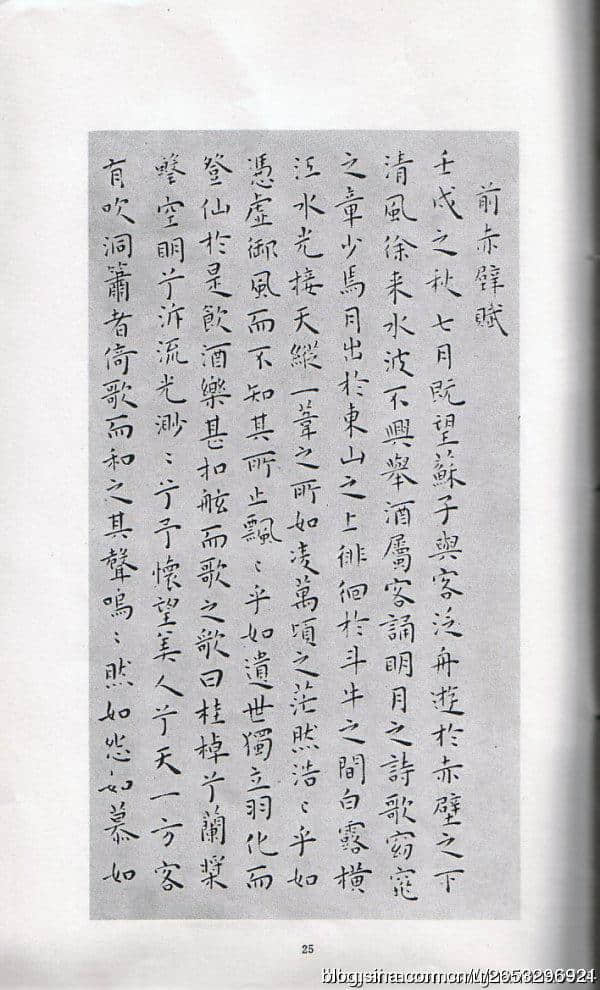 前赤壁賦
壬戌之秋七月既望蘇子與客泛舟遊於赤壁之下
清風徐来水波不興舉酒屬客誦明月之詩歌窈窕
之章少焉月出於東山之上徘徊於斗牛之間白露橫
江水光接天縱一葦之所如凌萬頃之茫然浩〻乎如
憑虛御風而不知其所止飄〻乎如遺世獨立羽化而
登仙於是飲酒樂甚扣舷而歌之歌曰桂棹兮蘭槳
擊空明兮泝流光渺〻兮予懷望美人兮天一方客
有吹洞簫者倚歌而和之其聲嗚〻然如怨如慕如
25